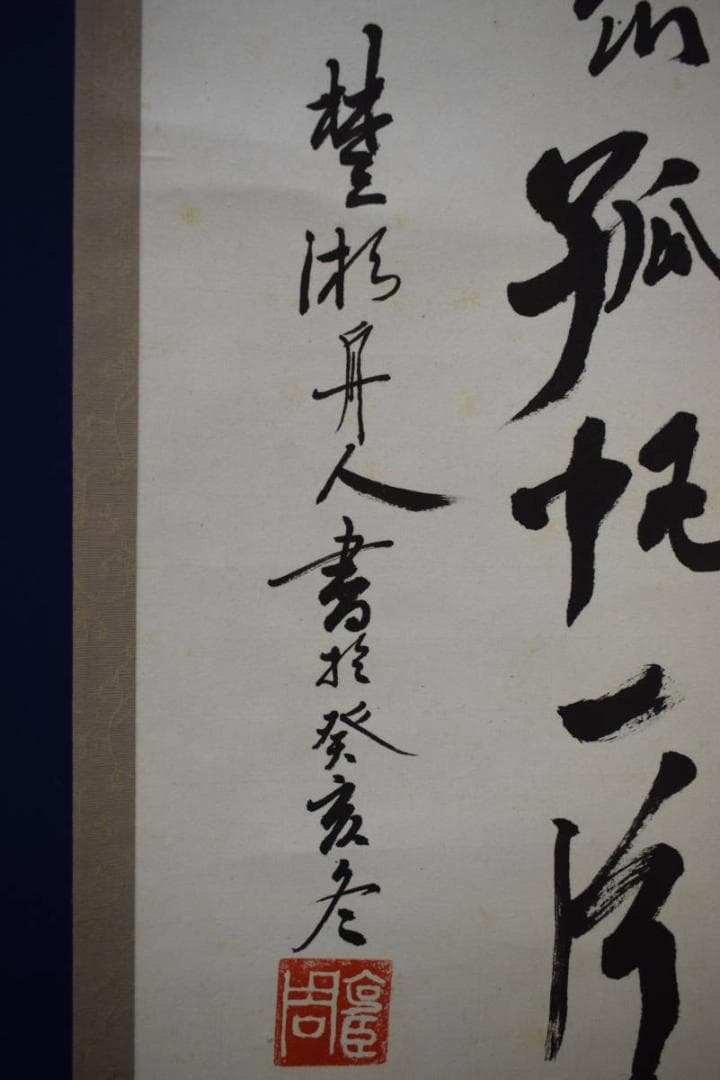 孤帆一片
楚湘舟人書於癸亥冬
周